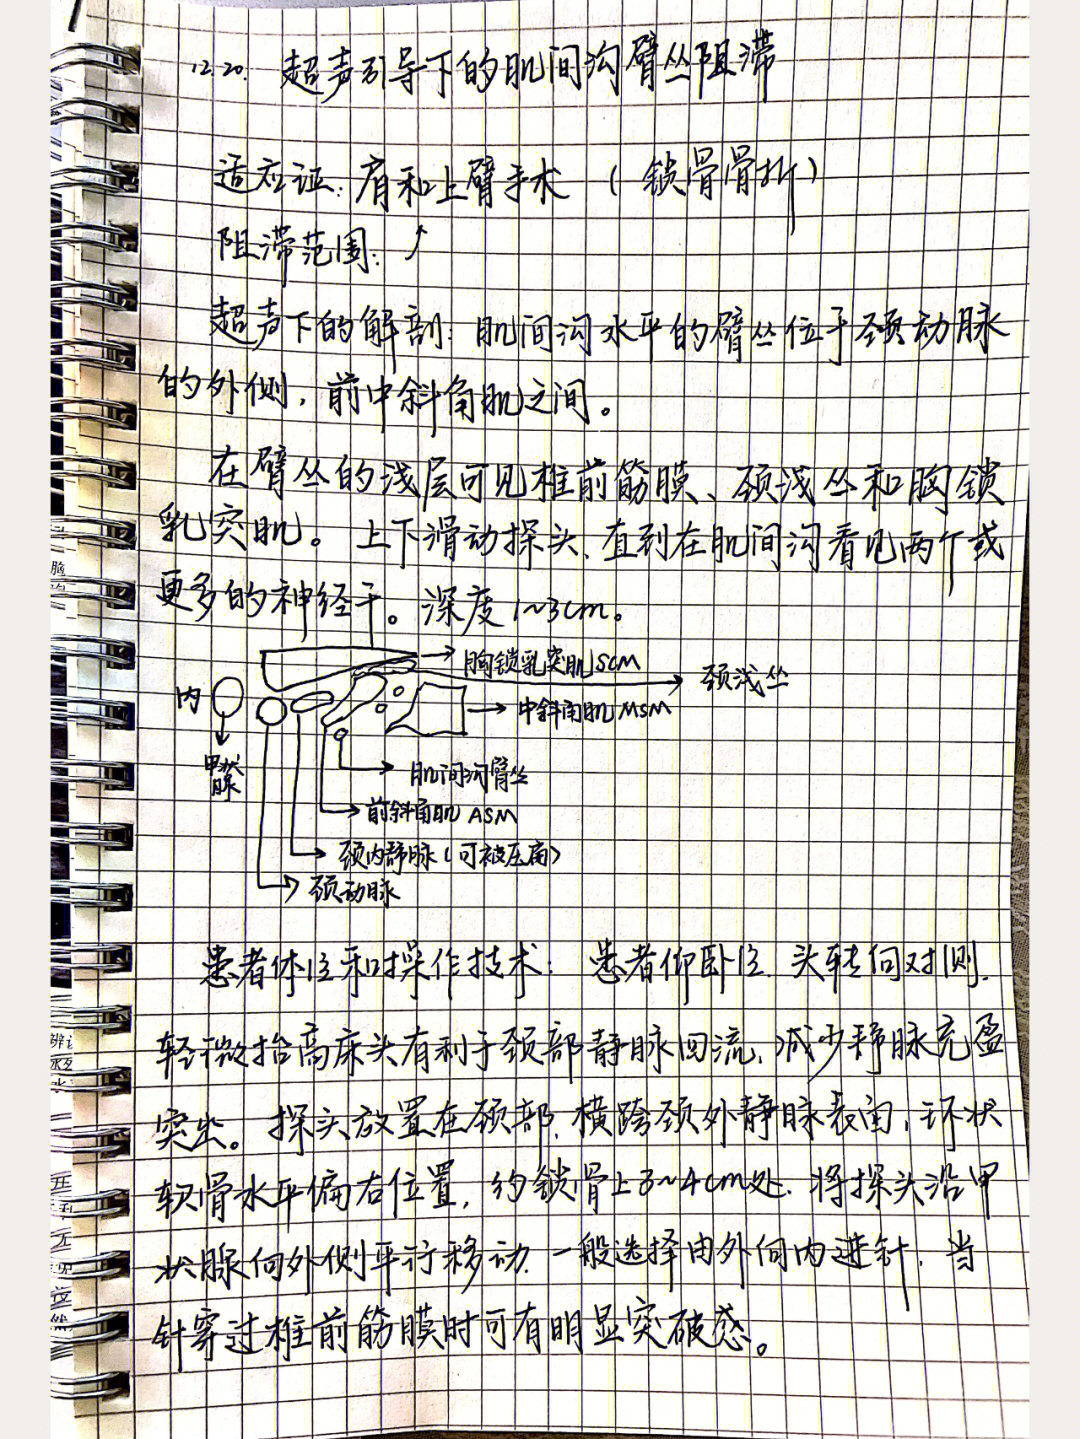 12.20. 超声引导下的肌间沟臂丛阻滞
适应证：肩和上臂手术 （锁骨骨折）
阻滞范围：↑
超声下的解剖：肌间沟水平的臂丛位于颈动脉
的外侧，前中斜角肌之间。
在臂丛的浅层可见椎前筋膜、颈浅丛和胸锁
乳突肌。上下滑动探头，直到在肌间沟看见两个或
更多的神经干。深度1~3cm。
胸锁乳突肌SCM
颈浅丛
内
中斜角肌MSM
甲状
腺
肌间沟臂丛
前斜角肌ASM
颈内静脉（可被压扁）
颈动脉
患者体位和操作技术：患者仰卧位，头转向对侧，
轻微抬高床头有利于颈部静脉回流，减少静脉充盈
突出。探头放置在颈部，横跨颈外静脉表面，环状
软骨水平偏右位置，约锁骨上3~4cm处，将探头沿甲
状腺向外侧平行移动，一般选择由外向内进针，当
针穿过椎前筋膜时可有明显突破感。